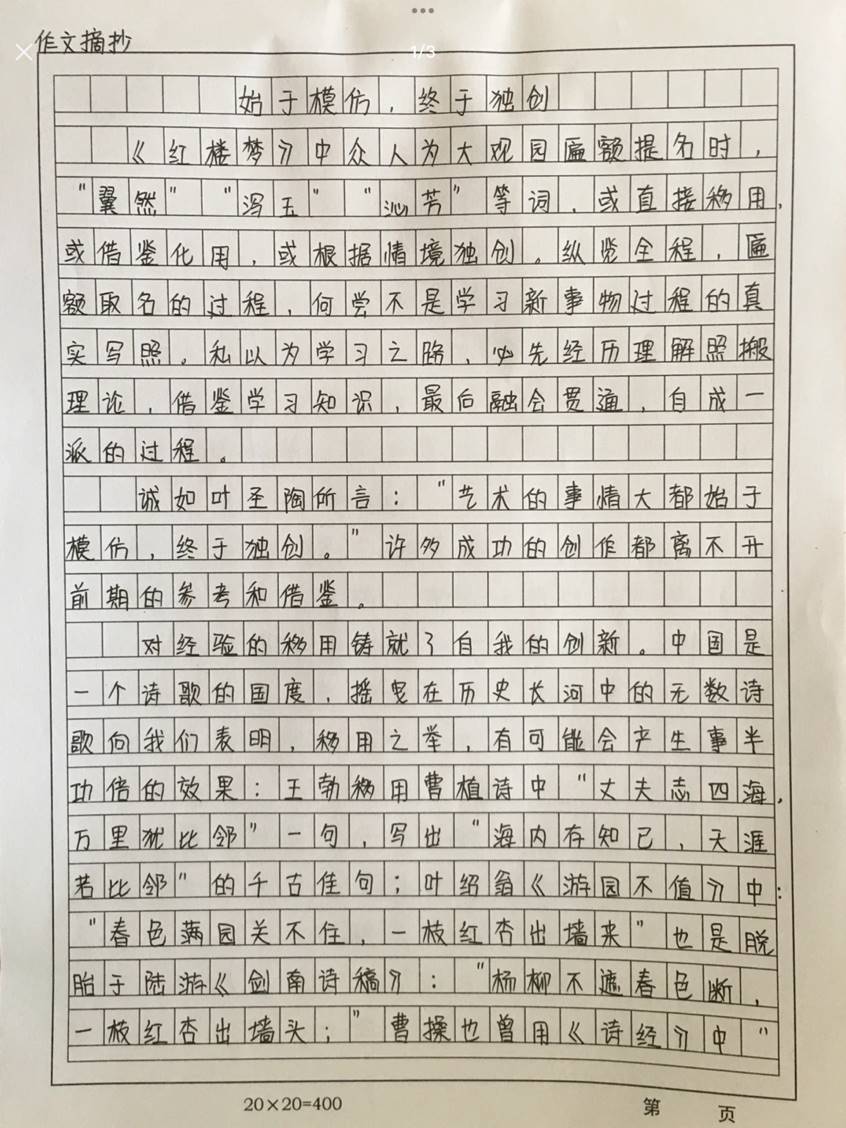 作文摘抄
1/3
始于模仿，终于独创
《红楼梦》中众人为大观园匾额提名时，
“翼然”“泻玉”“沁芳”等词，或直接移用，
或借鉴化用，或根据情境独创。纵览全程，匾
额取名的过程，何尝不是学习新事物过程的真
实写照。私以为学习之路，必先经历理解照搬
理论，借鉴学习知识，最后融会贯通，自成一
派的过程。
诚如叶圣陶所言：“艺术的事情大都始于
模仿，终于独创。”许多成功的创作都离不开
前期的参考和借鉴。
对经验的移用铸就了自我的创新。中国是
一个诗歌的国度，摇曳在历史长河中的无数诗
歌向我们表明，移用之举，有可能会产生事半
功倍的效果：王勃移用曹植诗中“丈夫志四海，
万里犹比邻”一句，写出“海内存知己，天涯
若比邻”的千古佳句；叶绍翁《游园不值》中：
“春色满园关不住，一枝红杏出墙来”也是脱
胎于陆游《剑南诗稿》：“杨柳不遮春色断，
一枝红杏出墙头；”曹操也曾用《诗经》中“
20×20=400
第 页